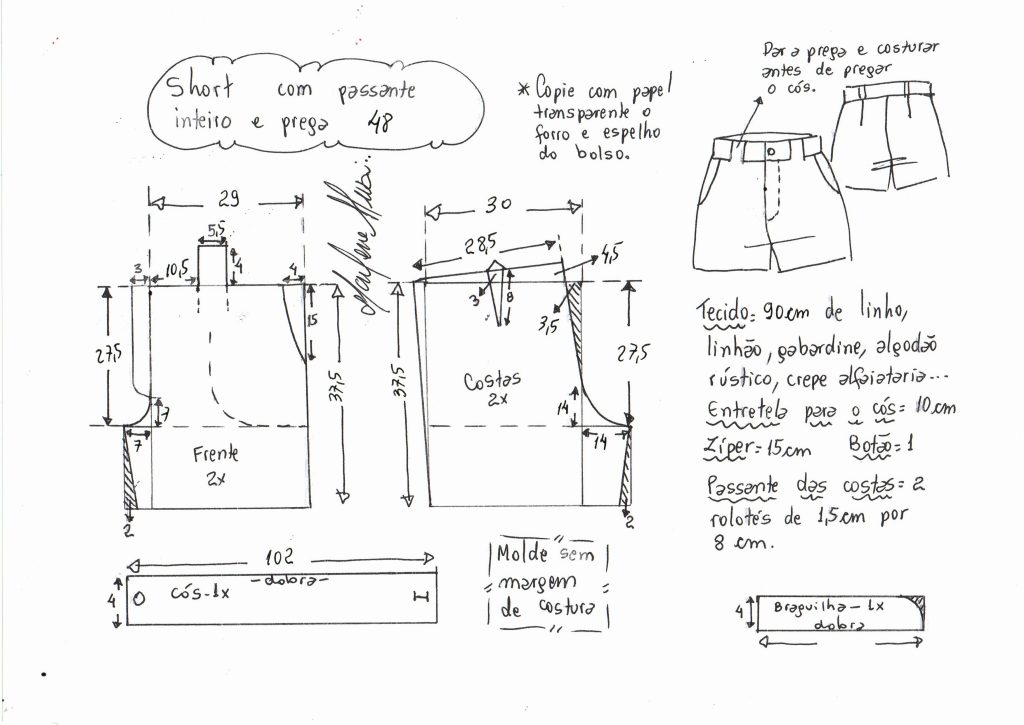 Short com passante
inteiro e prega 48
* Copie com papel
transparente o
forro e espelho
do bolso.
Dar a prega e costurar
antes de pregar
o cós.
29
5,5
3
10,5
4
4
15
27,5
37,5
7
7
Frente
2x
2
30
28,5
4,5
3
8
3,5
37,5
27,5
Costas
2x
14
14
2
Tecido: 90cm de linho,
linhão, gabardine, algodão
rústico, crepe alfaiataria...
Entretela para o cós = 10cm
Zíper = 15cm Botão = 1
Passante das costas = 2
rolotés de 1,5cm por
8 cm.
102
4
cós-1x
-dobra-
Molde sem
margem
de costura
4
Braguilha-1x
dobra